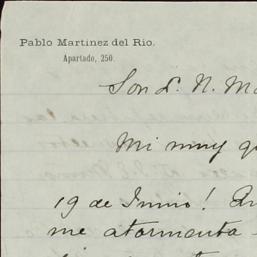 Pablo Martinez del Rio.
Apartado, 250.
Son L. N. Ma
Mi muy q
19 de Junio! An
me atormenta